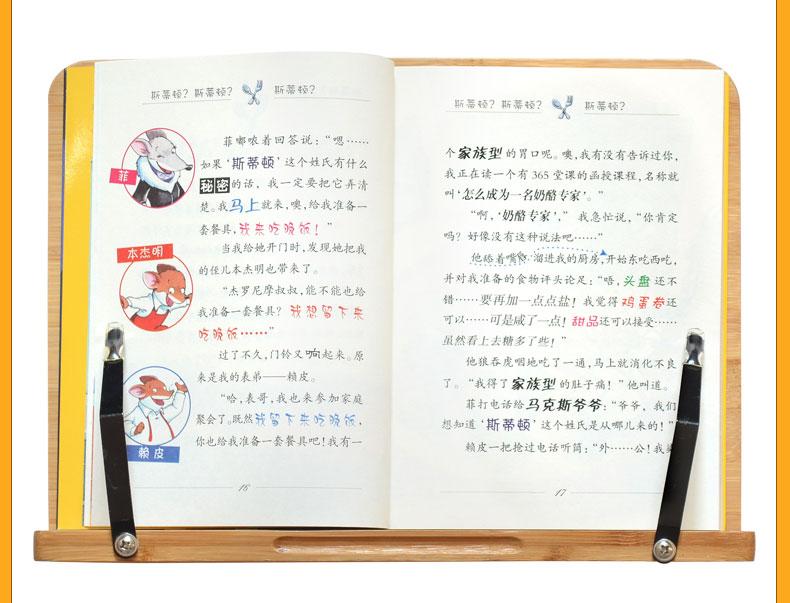 斯蒂顿?斯蒂顿? 斯蒂顿?
菲嘟哝着回答说：“嗯……
如果‘斯蒂顿’这个姓氏有什么
秘密的话，我一定要把它弄清
楚。我马上就来，噢，给我准备一
套餐具，我来吃晚饭！”
当我给她开门时，发现她把我
的侄儿本杰明也带来了。
“杰罗尼摩叔叔，能不能也给
我准备一套餐具？我想留下来
吃晚饭……”
过了不久，门铃又响起来。原
来是我的表弟——赖皮。
“哈，表哥，我也来参加家庭
聚会了。既然我留下来吃晚饭，
你也给我准备一套餐具吧！我有一
菲
本杰明
赖皮
16
斯蒂顿?斯蒂顿? 斯蒂顿?
个家族型的胃口呢。噢，我有没有告诉过你，
我正在读一个有365堂课的函授课程，名称就
叫‘怎么成为一名奶酪专家’。”
“啊，‘奶酪专家’，”我急忙说，“你肯定
吗？好像没有这种说法吧……”
他舔着嘴 溜进我的厨房，开始东吃西吃，
并对我准备的食物评头论足：“唔，头盘还不
错……要再加一点点盐！我觉得鸡蛋卷还
可以……可是咸了一点！甜品还可以接受……
虽然看上去糖多了些！”
他狼吞虎咽地吃了一通，马上就消化不良
了。“我得了家族型的肚子痛！”他叫道。
菲打电话给马克斯爷爷：“爷爷，我们
想知道‘斯蒂顿’这个姓氏是从哪儿来的！”
赖皮一把抢过电话听筒：“外……公！我
17